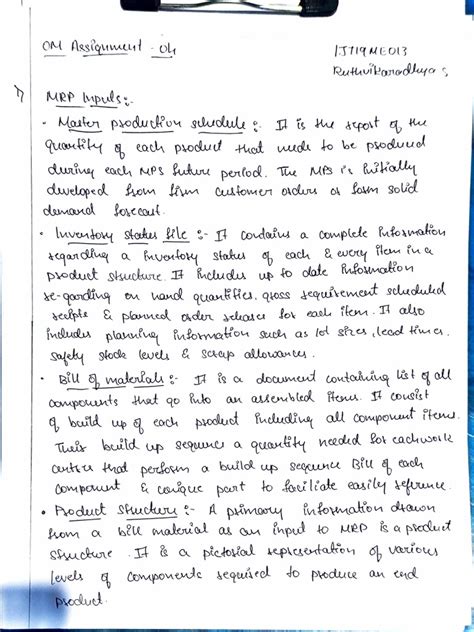 OM Assignment - 04
1JT19ME013
Ruthvikaradhya S
1) MRP Inputs:-
• Master production schedule :- It is the report of the
quantity of each product that needs to be produced
during each MPS future period. The MPS is initially
developed from firm customer orders or form solid
demand forecast.
• Inventory status file :- It contains a complete information
regarding a inventory status of each & every item in a
product structure. It includes up to date information
re-garding on hand quantities, gross requirement scheduled
reciepts & planned order releases for each item. It also
includes planning information such as lot sizes, lead times,
safety stock levels & scrap allowances.
• Bill of materials :- It is a document containing list of all
components that go into an assembled items. It consist
of build up of each product including all component items.
Their build up sequence a quantity needed for each work
centers that perform a build up sequence Bill of each
component & unique part to faciliate easily reference.
• Product structure :- A primary information drawn
from a bill material as an input to MRP is a product
structure. It is a pictorial representation of various
levels of components required to produce an end
product.